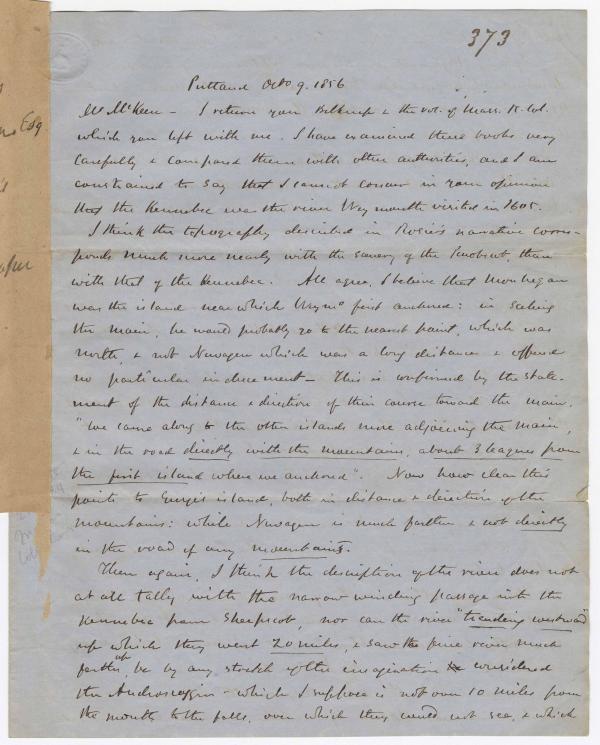 373
Portland Octo 9. 1856
Mr McKeen - I return you Belknap & the vol. of Mass. H. Col.
which you left with me. I have examined these books very
carefully & compared them with other authorities, and I am
constrained to say that I cannot concur in your opinion
that the Kennebec was the river Weymouth visited in 1605.
I think the topography described in Rosier's narrative corres-
ponds much more nearly with the scenery of the Penobscot, than
with that of the Kennebec. All agree, I believe that Monhegan
was the island near which Weymo first anchored: in seeking
the main, he would probably go to the nearest point, which was
north, & not Newagen which was a long distance & offered
no particular inducement - This is confirmed by the state-
ment of the distance & direction of their course toward the main.
"We came along to the other islands more adjoining the main,
& in the road directly with the mountains, about 3 leagues from
the first island where we anchored". Now how clear this
points to Georges island, both in distance & direction of the
mountains: while Newagen is much farther & not directly
in the road of any mountains.
Then again, I think the description of the river does not
at all tally with the narrow winding passage into the
Kennebec from Sheepscot, nor can the river "trending westward"
up which they went 20 miles, & saw the fine river much
farther up, be by any stretch of the imagination considered
the Androscoggin - which I suppose is not over 10 miles from
the mouth to the falls, over which they could not see, & which
Esq